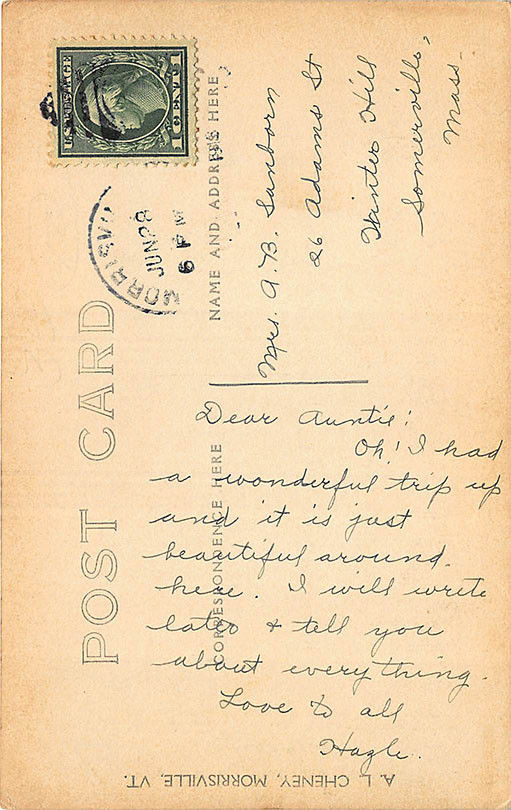 U.S. POSTAGE
1 CENT 1
MORRISV
JUN 28
6 PM
POST CARD
NAME AND ADDRESS HERE
Mrs. A. B. Sanborn
26 Adams St
Winter Hill
Somerville,
Mass.
CORRESPONDENCE HERE
Dear Auntie:
Oh! I had
a wonderful trip up
and it is just
beautiful around
here. I will write
later & tell you
about everything.
Love to all
Hazle.
A. L. CHENEY, MORRISVILLE, VT.